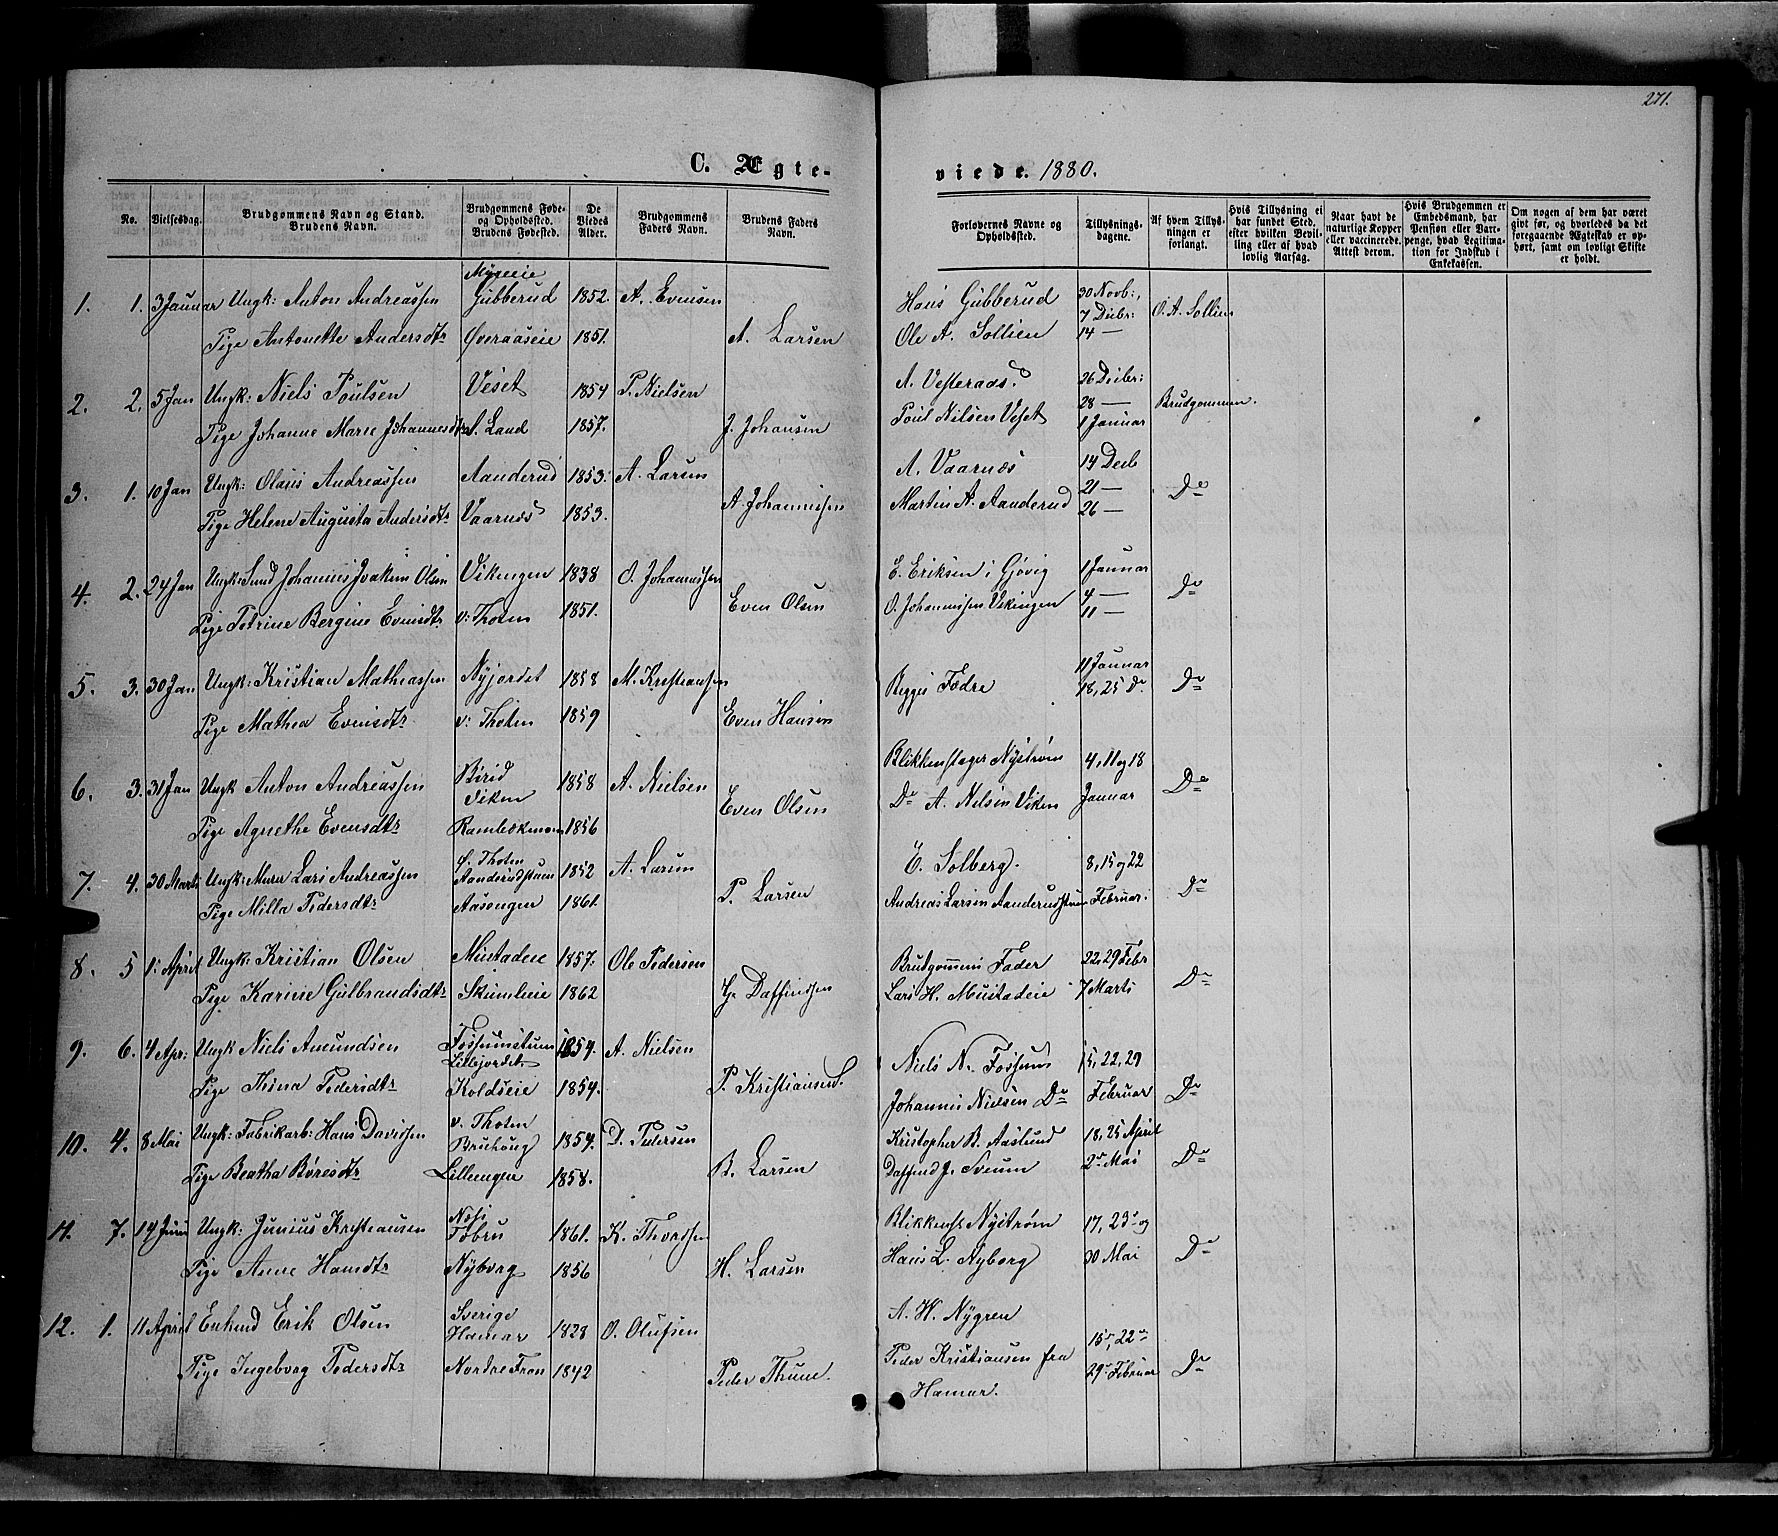 271.
C. Ægte-
viede. 1880.
No.
Vielsesdag.
Brudgommens Navn og Stand.
Brudens Navn.
Brudgommens Føde-
og Opholdssted.
Brudens Fødested.
De
Viedes
Alder.
Brudgommens
Faders Navn.
Brudens Faders
Navn.
Forlovernes Navne og
Opholdssted.
Tillysnings-
dagene.
Af hvem Tillys-
ningen er
forlangt.
Hvis Tillysning ei
har fundet Sted,
efter hvilken Bevil-
ling eller af hvad
lovlig Aarsag.
Naar havt de
naturlige Kopper
eller vaccinerede.
Attest derom.
Hvis Brudgommen er
Embedsmand, har
Pension eller Vart-
penge, hvad Legitima-
tion for Indskud i
Enkekassen.
Om nogen af dem har været
gift før, og hvorledes da det
foregaaende Ægteskab er op-
hørt, samt om lovlig Skifte
er holdt.
1. 1. 3 Januar Ungk: Anton Andreassen Myreeie Gubberud 1852. A. Evensen Hans Gubberud 30 Novb:, 7 Decbr: O. A. Sollien
Pige Antonette Andersdtr Øveraaseie 1851. A. Larsen Ole A. Sollien 14 —
2. 2. 5 Jan Ungk: Niels Poulsen Veset 1854 P. Nielsen A. Vesteraas. 26 Decbr: 28 — Brudgommen.
Pige Johanne Marie Johannesdtr S. Land 1857. J. Johansen Poul Nilsen Veset 1 Januar
3. 1. 10 Jan Ungk: Olaus Andreassen Aanderud 1853. A. Larsen A. Vaarnæs 14 Decb 21 — Do
Pige Helene Augusta Andersdtr Vaarnæs 1853. A Johannessen Martin A. Aanderud 26 —
4. 2. 24 Jan Ungk: Smed Johannes Joakim Olsen Vikingen 1838 O. Johannessen E. Eriksen i Gjøvig 1 Januar Do
Pige Petrine Bergine Evensdtr v: Thoten 1851. Even Olsen O. Johannessen Vikingen 4 — 11 —
5. 3. 30 Jan Ungk: Kristian Mathiassen Nyjordet 1858 M. Kristiansen Begges Fædre 11 Januar 18, 25 Do Do
Pige Mathea Evensdtr v: Thoten 1859 Even Hansen
6. 3. 31 Jan Ungk Anton Andreassen Birid Viken 1858 A. Nielsen Blikkenslager Nystrøm 4, 11 og 18 Do
Pige Agnethe Evensdtr Rambækmoen 1856 Even Olsen Do A. Nelsen Viken Januar
7. 4. 30 Marts Ungk: Murer Lars Andreassen Ø. Thoten Aanderudstuen 1852 A. Larsen E. Solberg. 8, 15 og 22 Do
Pige Milla Pedersdtr Aasengen 1861. P. Larsen Andreas Larsen Aanderudstuen Februar.
8. 5 1. April Ungk: Kristian Olsen Mustadeie 1857. Ole Pedersen Brudgommens Fader 22, 29 Febr Do
Pige Karine Gulbrandsdtr Skumleie 1862 G. Daffinssen Lars H. Mustadeie 7 Marts
9. 6. 4 Apr: Ungk Niels Amundsen Fossumstuen Lillejordet 1854. A. Nielsen Niels N. Fossum 15, 22, 29 Do
Pige Thina Pedersdtr Koldseie 1854. P. Kristiansen Johannes Nielsen Do Februar
10. 4. 8 Mai Ungk: Fabrikarb: Hans Davidsen v. Thoten Bruhaug 1854. D. Pedersen Kristopher B. Aaslund 18, 25 April Do
Pige Beatha Børesdtr Lillengen 1858. B. Larsen Daffind J. Sveum 2den Mai
11. 7. 14 Juni Ungk: Junius Kristiansen Næs Fobru 1861. K. Thordsen Blikkensl Nystrøm 17, 23 og Do
Pige Anne Hansdtr Nyborg 1856 H. Larsen Hans L. Nyborg 30 Mai
12. 1. 11 April Enkmd Erik Olsen Sverige Hamar 1828 O. Olufsen A. W. Nygren 15de, 22de Do
Pige Ingeborg Pedersdtr Nordre Fron 1842 Peder Thune. Peder Kristiansen fra Hamar. 29de Februar